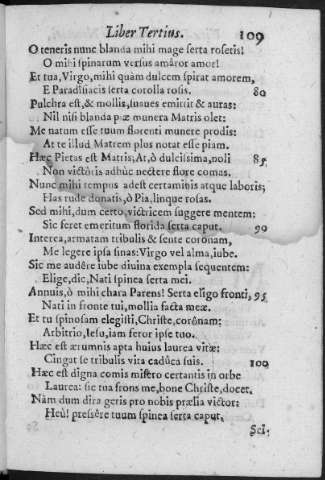 Liber Tertius. 109
O teneris nunc blanda mihi mage serta rosetis!
O mihi spinarum versus amâror amor!
Et tua, Virgo, mihi quàm dulcem spirat amorem,
E Paradisiacis serta corolla rosis. 80
Pulchra est, & mollis, suaues emittit & auras:
Nil nisi blanda piæ munera Matris olet:
Me natum esse tuum florenti munere prodis:
At te illud Matrem plus notat esse piam.
Hæc Pietas est Matris; At, ò dulcissima, noli 85
Non victôris adhûc nectere flore comas.
Nunc mihi tempus adest certaminis atque laboris;
Has rude donatis, ô Pia, linque rosas.
Sed mihi, dum certo, victricem suggere mentem:
Sic feret emeritum florida serta caput. 90
Interea, armatam tribulis & sente corônam,
Me legere ipsa sinas: Virgo vel alma, iube.
Sic me audêre iube diuina exempla sequentem:
Elige, dic, Nati spinea serta mei.
Annuis, ô mihi chara Parens! Serta eligo fronti, 95
Nati in fronte tui, mollia facta meæ.
Et tu spinosam elegisti, Christe, corônam:
Arbitrio, Iesu, iam feror ipse tuo.
Hæc est ærumnis apta huius laurea vitæ:
Cingut se tribulis vita cadûca suis. 100
Hæc est digna comis misero certantis in orbe
Laurea: sic tua frons me, bone Christe, docet.
Nàm dum dira geris pro nobis prælia victor:
Heù! pressêre tuum spinea serta caput.
Sci-